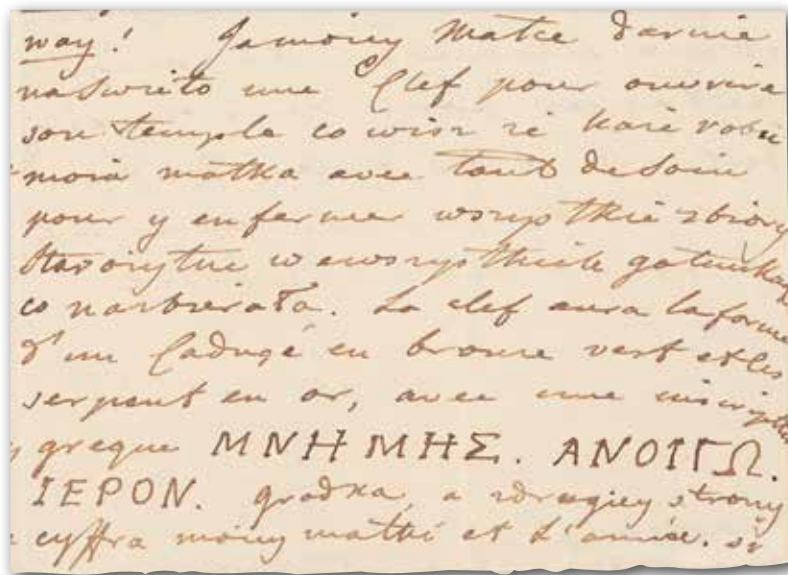 way! Ja moiey Matce daruie
na Swieto une Clef pour ouvrire
son temple co wisz ze kaze robic
moia matka avec tant de Soin
pour y enfermer wszystkie zbiory
Starozytne w ewszystkich gatunkach
co nazbierała. La clef aura la forme
d'un Caducé en bronze vert et les
serpent en or, avec une inscription
greque ΜΝΗΜΗΣ. ΑΝΟΙΓΩ.
ΙΕΡΟΝ. gradka, a zdrugiey strony
cyffra moiey matki et L'année. si